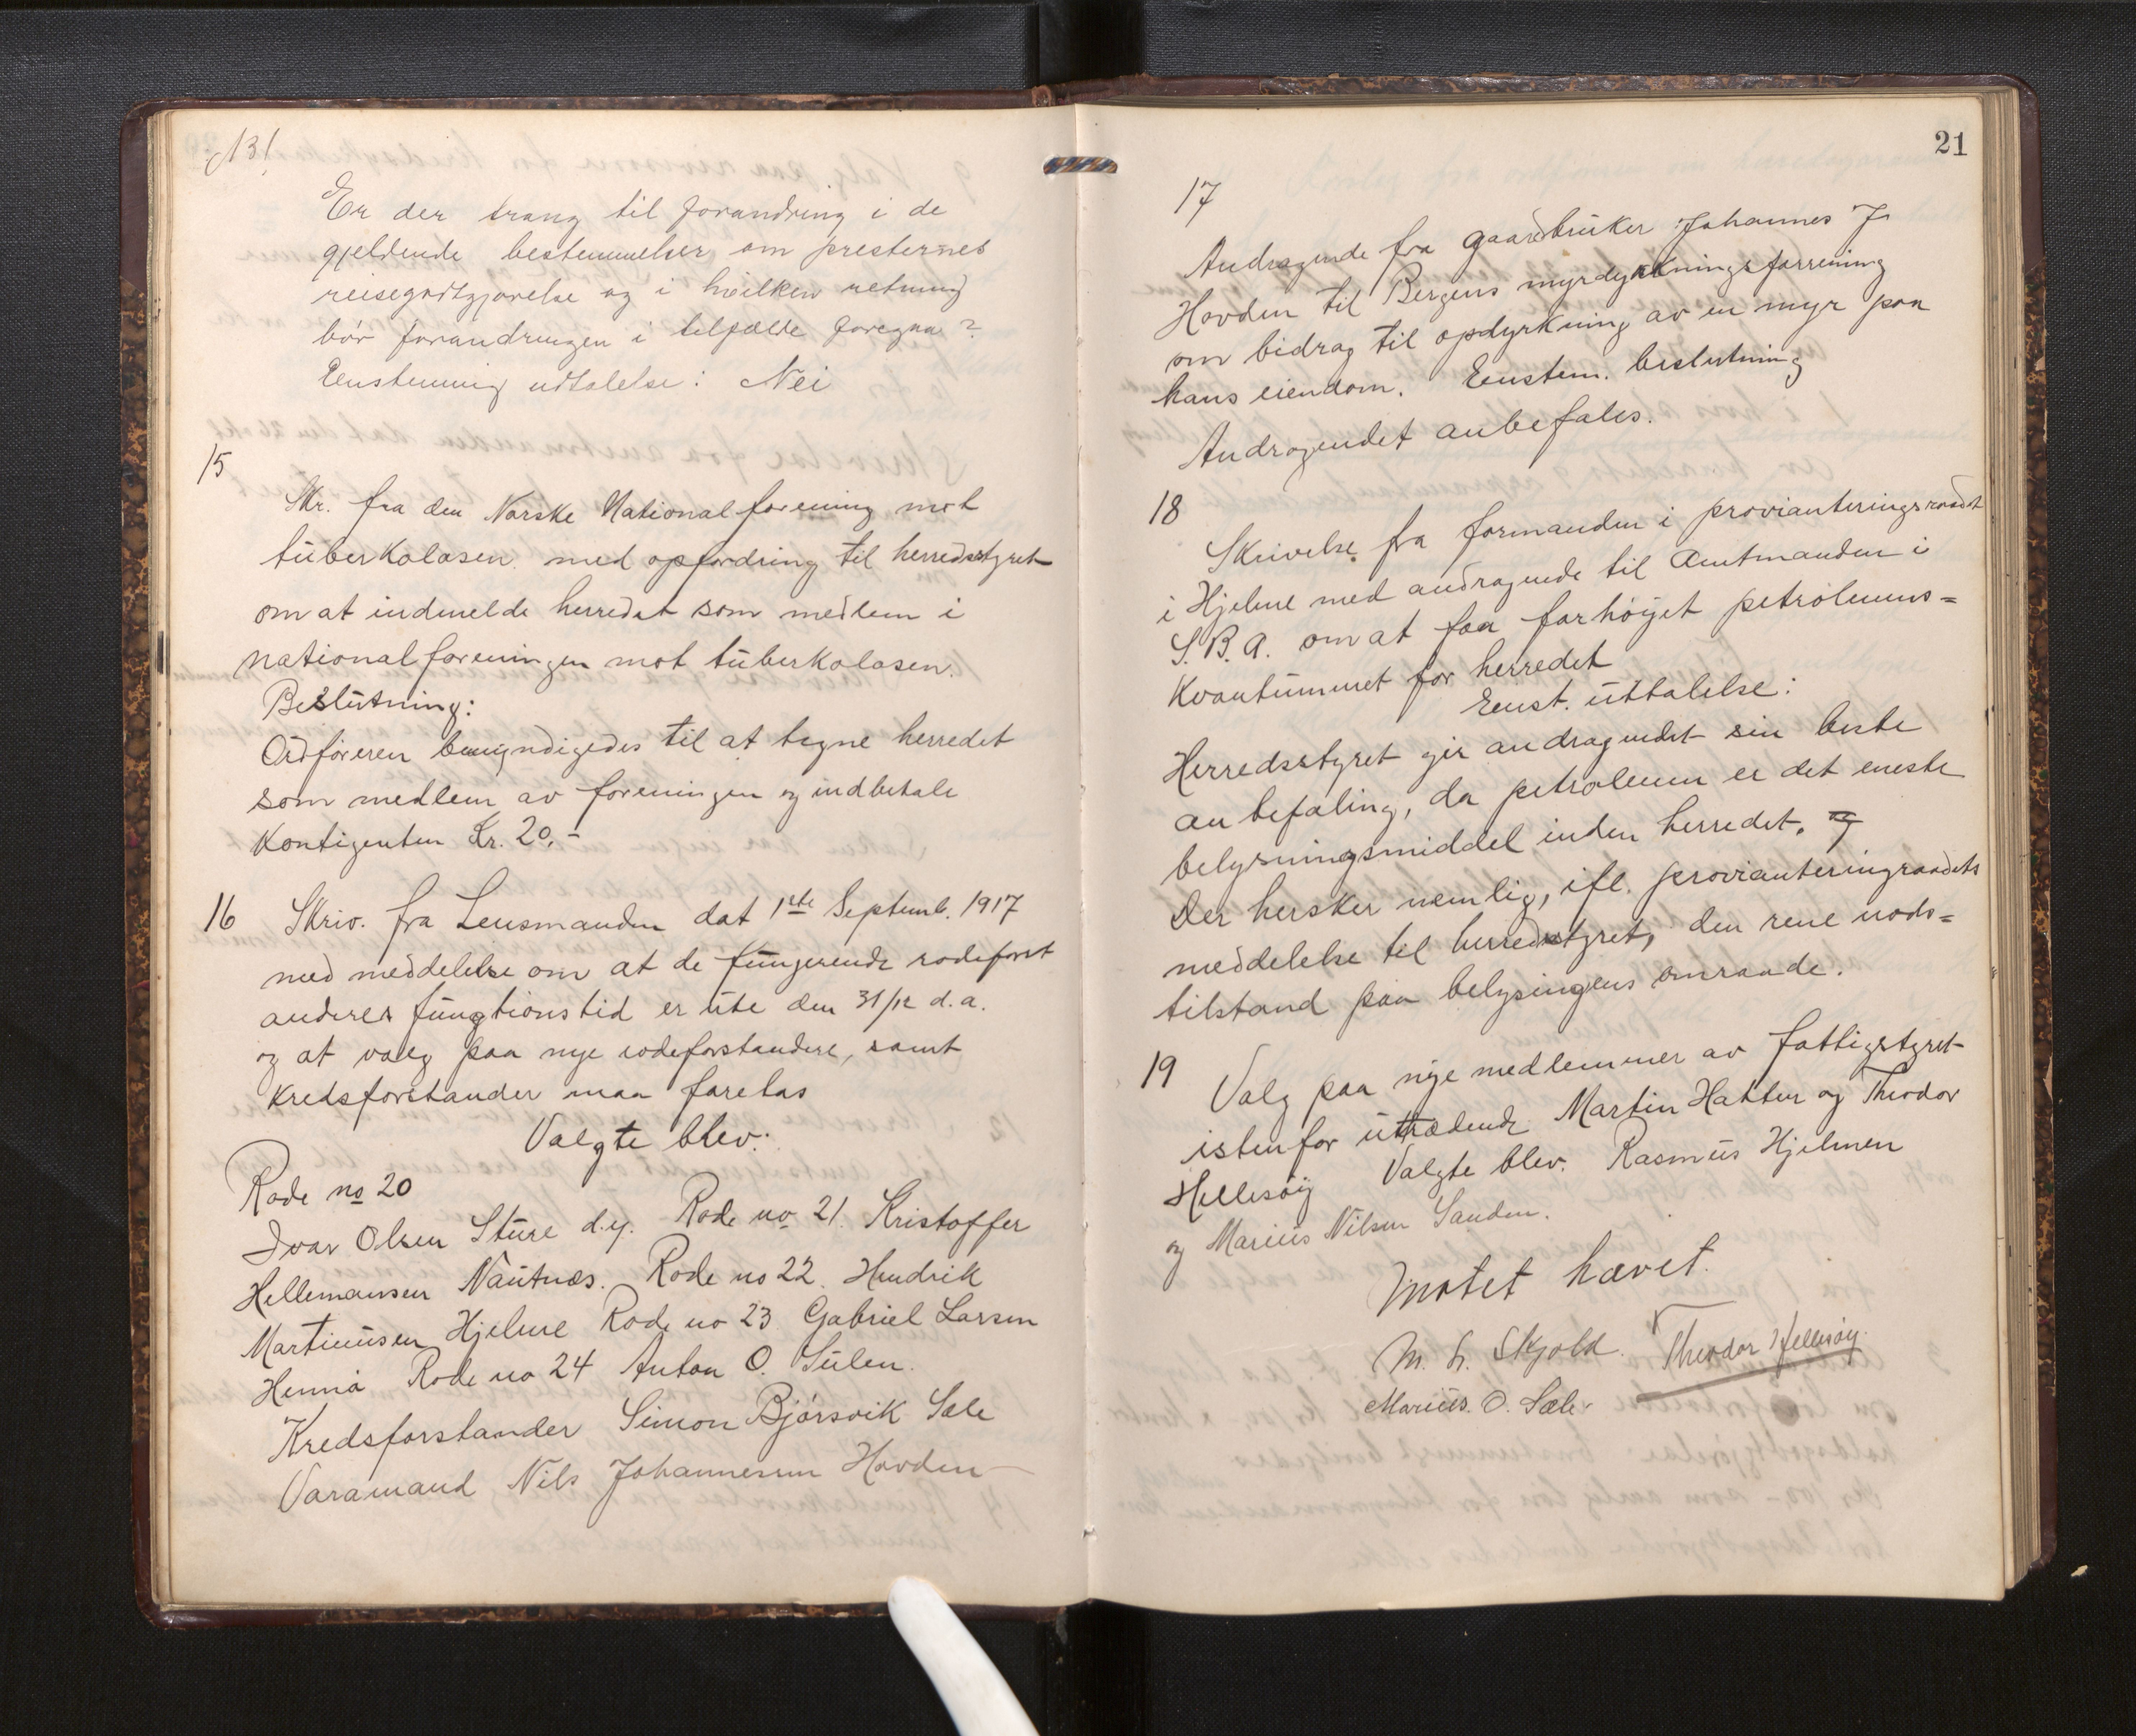 Er der trang til forandring i de
gjeldende bestemmelser om presternes
reisegodtgjørelse og i hvilken retning
bør forandringen i tilfælde foregaa?
Eenstemmig udtalelse: Nei
15
Skr. fra den Norske Nationalforening mot
tuberkolosen med opfordring til herredsstyret
om at indmelde herredet som medlem i
nationalforeningen mot tuberkolosen.
Beslutning:
Ordføreren bemyndigedes til at tegne herredet
som medlem av foreningen og indbetale
Kontigenten Kr. 20.-
16 Skriv. fra Lensmanden dat 1ste Septemb. 1917
med meddelelse om at de fungerende rodeforst
anderes fungtionstid er ute den 31/12 d.a.
og at valg paa nye rodeforstandere, samt
kredsforstander maa foretas
Valgte blev:
Rode no 20
Ivar Olsen Sture d.y. Rode no 21. Kristoffer
Hellemansen Nautnæs. Rode no 22. Hendrik
Martinusen Hjelme Rode no 23 Gabriel Larsen
Hennø Rode no 24 Anton O. Sulen.
Kredsforstander Simon Bjørsvik Sæle
Varamand Nils Johannessen Hovden
21
17
Andragende fra gaardbruker Johannes J.
Hovden til Bergens myrdyrkningsforrening
om bidrag til opdyrkning av en myr paa
hans eiendom. Eenstem. beslutning
Andragendet anbefales.
18
Skrivelse fra formanden i provianteringsraadet
i Hjelme med andragende til Amtmanden i
S.B.A. om at faa forhøiget petroleums=
kvantummet for herredet
Eenst. uttalelse:
Herredsstyret gir andragendet sin beste
anbefaling, da petroleum er det eneste
belysningsmiddel inden herredet. og
Der hersker nemlig, ifl. provianteringraadets
meddelelse til herredsstyret, den rene nøds=
tilstand paa belysingens omraade.
19
Valg paa nye medlemmer av fattigstyret
istenfor uttrædende Martin Hatten og Theodor
Hellesøig Valgte blev. Rasmus Hjelmen
og Marius Nilsen Sanden.
Møtet hævet.
M. L. Skjold. Theodor Hellesøy.
Marius. O. Sæle.